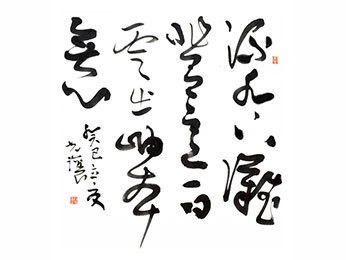 流水下灘
非有意白
雲出岫本
無心
癸巳立夏